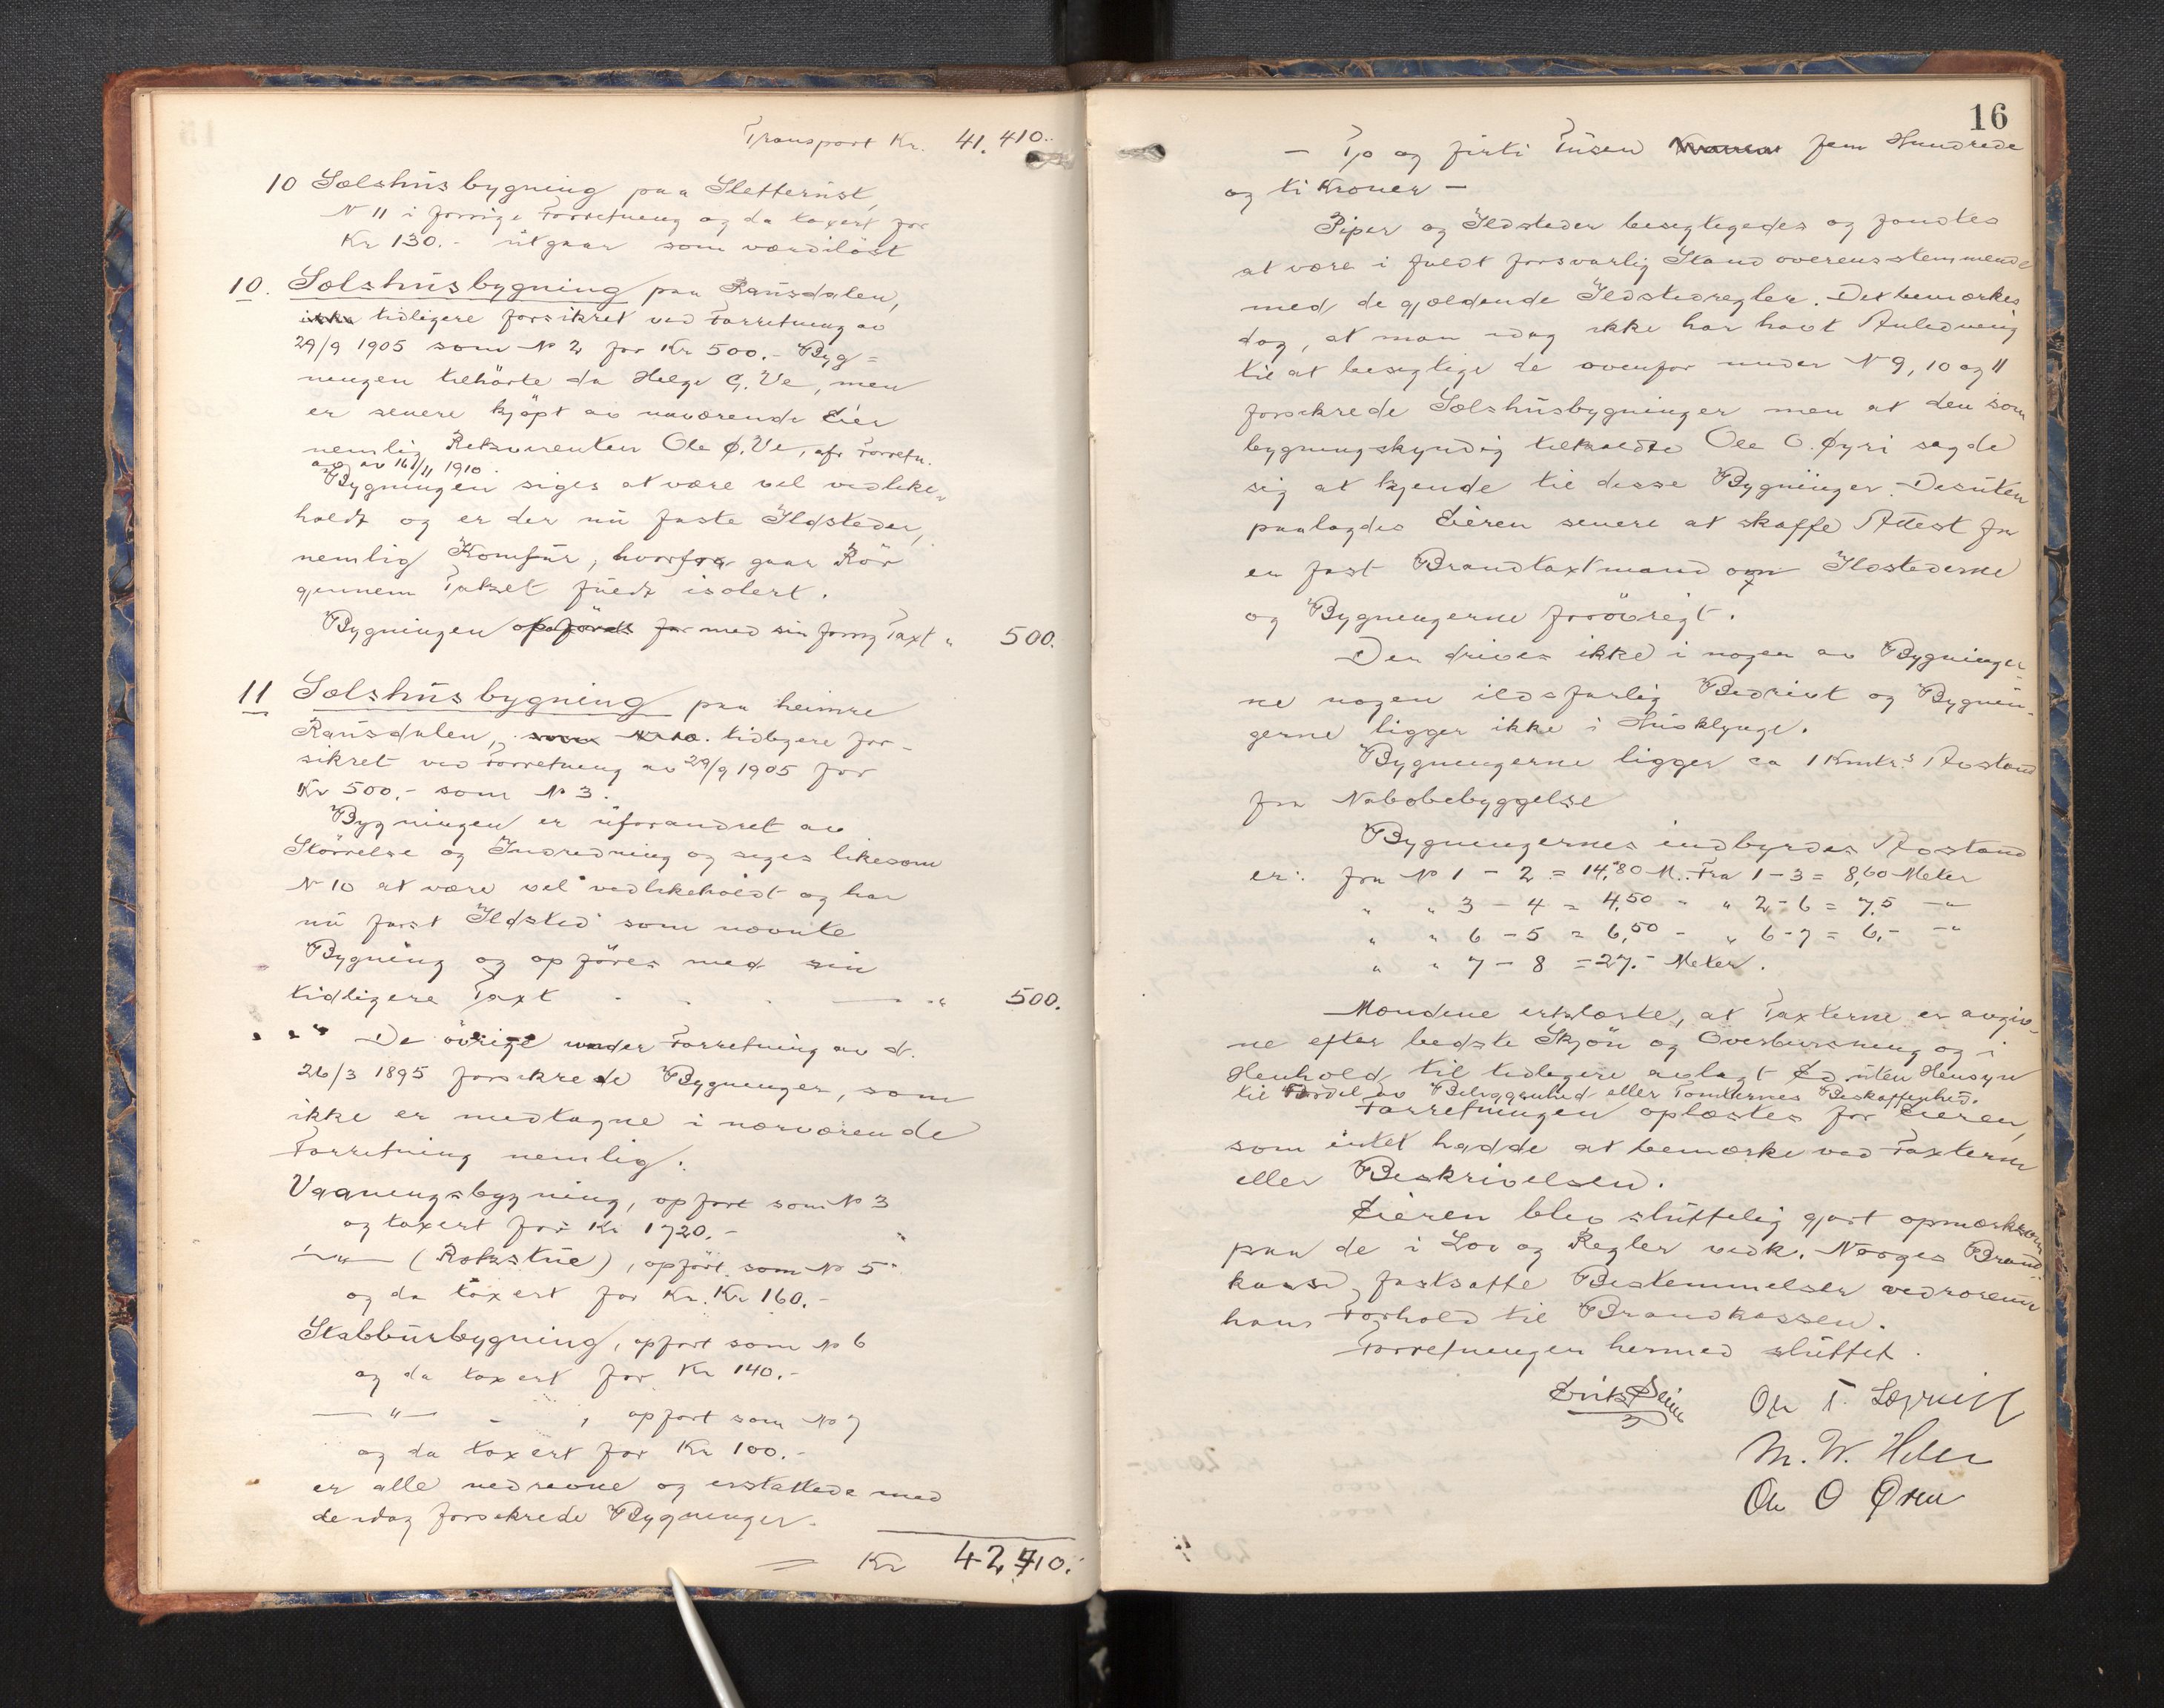 Transport Kr. 41.410.
10 Sælshusbygning paa Sletterust,
N 11 i forrige Forretning og da taxert for
Kr 130.- utgaar som værdiløst
10. Sælshusbygning paa Rausdalen,
ikke tidligere forsikret ved Forretning av
29/9 1905 som No 2 for Kr 500.- Byg=
ningen tilhörte da Helge G. Ve, men
er senere kjöpt av nuværende Eier
nemlig Rekvirenten Ole Ø. Ve, afr Forretn.
av 16/11 1910.
Bygningen siges at være vel vedlike-
holdt og er der nu faste Ildsteder,
nemlig Komfur, hvorfra gaar Rör
gjennem Taket fuldt isolert.
Bygningen opföres for med sin forrig Taxt " 500.
11 Sælshusbygning paa heimre
Rausdalen, som No 10. tidligere for-
sikret ved Forretning av 29/9 1905 for
Kr 500.- som No 3.
Bygningen er uforandret av
Störrelse og Indredning og siges likesom
N 10 at være vel vedlikeholdt og har
nu fast Ildsted som nævnte
Bygning og opföres med sin
tidligere Taxt - - - — " 500.
De övrige under Forretning av d.
26/3 1895 forsikrede Bygninger, som
ikke er medtagne i nærværende
Forretning nemlig:
Vaaningsbygning, opfört som No 3
og taxert for Kr 1720.-
—"— (Rokstue), opfört som No 5
og da taxert for Kr. Kr 160.-
Stabbursbygning, opfört som No 6
og da taxert for Kr 140.-
—"— - , opfört som No 7
og da taxert for Kr 100.-
er alle nedrevne og erstattede med
de idag forsikrede Bygninger.
= Kr 42,410.
16
- To og firti Tusen Kroner fem Hundrede
og ti Kroner -
Piper og Ildsteder besigtigedes og fandtes
at være i fuldt forsvarlig Stand overensstemmende
med de gjældende Ildstedregler. Det bemærkes
dog, at man idag ikke har havt Anledning
til at besigtige de ovenfor under N 9, 10 og 11
forsikrede Sælshusbygninger men at den som
bygningskyndig tilkaldte Ole O. Øyri sagde
sig at kjende til disse Bygninger. Desuten
paalagdes Eieren senere at skaffe Attest fra
en fast Brandtaxtmand om Ildstederne
og Bygningerne forövrigt.
Der drives ikke i nogen av Bygninger-
ne nogen ildsfarlig Bedrivt og Bygnin-
gerne ligger ikke i Husklynge.
Bygningerne ligger ca 1 Kmtr.s Avstand
fra Nabobebyggelse
Bygningernes indbyrdes Avstand
er: fra No 1 - 2 = 14,80 M. Fra 1-3 = 8,60 Meter
" " 3 - 4 = 4,50 - " 2-6 = 7,5 -"
" " 6 - 5 = 6,50 - " 6-7 = 6,- -"
" " 7 - 8 = 27.- Meter.
Mændene erklærte, at Taxterne er avgiv-
ne efter bedste Skjön og Overbevisning og i
Henhold til tidligere avlagt Ed uten Hensyn
til Fordel av Beliggenhed eller Tomternes Beskaffenhed.
Forretningen oplæstes for Eieren,
som intet hadde at bemærke ved Taxterne
eller Beskrivelsen.
Eieren blev sluttelig gjort opmærksom
paa de i Lov og Regler vedk. Norges Brand-
kasse fastsatte Bestemmelser vedrörende
hans Forhold til Brandkassen.
Forretningen hermed sluttet.
Ole T.
M. W.
Ole O